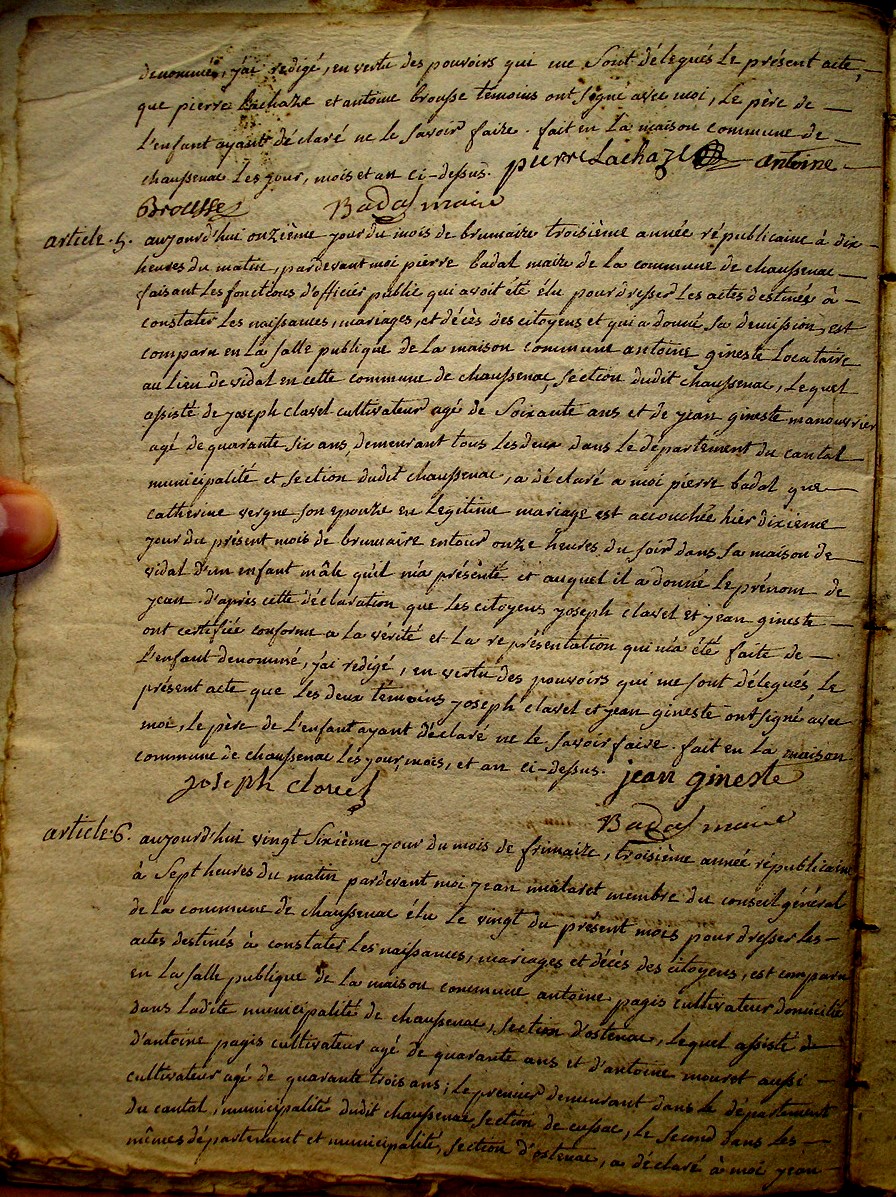 denommé, j'ai redigé, en vertu des pouvoirs qui me sont délegués le présent acte,
que pierre Lachaze et antoine brousse temoins ont signé avec moi, le père de
L'enfant ayant déclaré ne le savoir faire. fait en la maison commune de
chaussenac les jour, mois et an ci-dessus. pierre Lachaze antoine
Brousse Badal maire
article. 5. aujourd'hui onzième jour du mois de brumaire troisième année républicaine à dix
heures du matin, pardevant moi pierre badal maire de la commune de chaussenac
faisant les fonctions d'officier public qui avoit été élu pour dresser les actes destinés à
constater les naissances, mariages, et décès des citoyens et qui a donné sa demission, est
comparu en la salle publique de la maison commune antoine gineste locataire
au lieu de vidal en cette commune de chaussenac, section dudit chaussenac, lequel
assisté de joseph clavel cultivateur agé de soixante ans et de jean gineste manouvrier
agé de quarante six ans, demeurant tous les deux dans le département du cantal
municipalité et section dudit chaussenac, a déclaré a moi pierre badal que
catherine vergne son epouze en legitime mariage est accouchée hier dixième
jour du présent mois de brumaire entour onze heures du soir dans sa maison de
vidal d'un enfant mâle qu'il m'a présenté et auquel il a donné le prénom de
jean. d'après cette déclaration que les citoyens joseph clavel et jean gineste
ont certifiée conforme a la vérité et la représentation qui m'a été faite de
L'enfant denommé, j'ai redigé, en vertu des pouvoirs qui me sont délegués, le
présent acte que les deux témoins joseph clavel et jean gineste ont signé avec
moi, le père de L'enfant ayant déclaré ne le savoir faire. fait en la maison
commune de chaussenac les jour, mois, et an ci-dessus. jean gineste
joseph clavel
Badal maire
article. 6. aujourd'hui vingt sixième jour du mois de frimaire, troisième année républicaine
à sept heures du matin pardevant moi jean malaret membre du conseil général
de la commune de chaussenac élu le vingt du présent mois pour dresser les
actes destinés à constater les naissances, mariages et décès des citoyens, est comparu
en la salle publique de la maison commune antoine pagis cultivateur domicilié
dans ladite municipalité de chaussenac, section d'ostenac, lequel assisté de
d'antoine pagis cultivateur agé de quarante ans et d'antoine mouret aussi
cultivateur agé de quarante trois ans; le premier demeurant dans le département
du cantal, municipalité dudit chaussenac, section de cussac, le second dans les
mêmes département et municipalité, section d'ostenac, a déclaré à moi jean